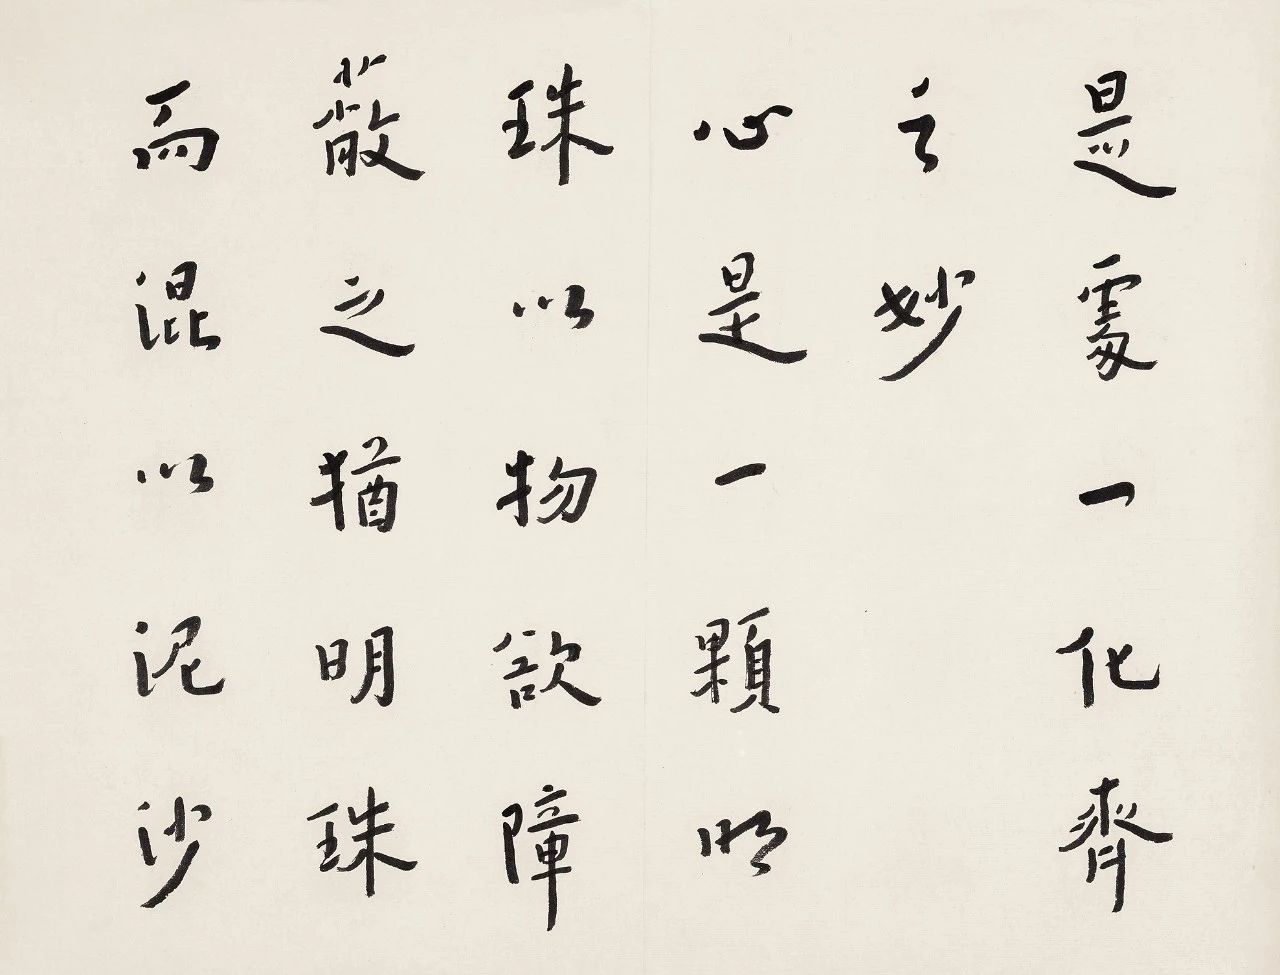 是處一化齊
之妙
心是一顆明
珠以物欲障
蔽之猶明珠
而混以泥沙